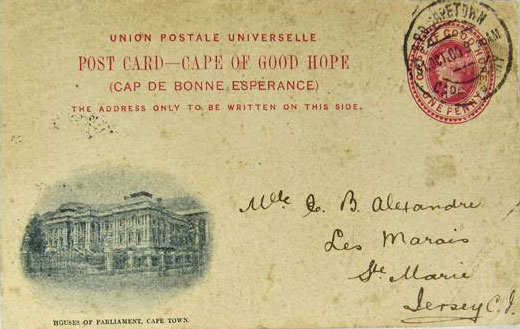 UNION POSTALE UNIVERSELLE
POST CARD—CAPE OF GOOD HOPE
(CAP DE BONNE ESPERANCE)
THE ADDRESS ONLY TO BE WRITTEN ON THIS SIDE.
CAPETOWN
OF GOOD HOPE
ONE PENNY
Mlle B. Alexandre
Les Marais
Ste Marie
Jersey C.I.
HOUSES OF PARLIAMENT, CAPE TOWN.